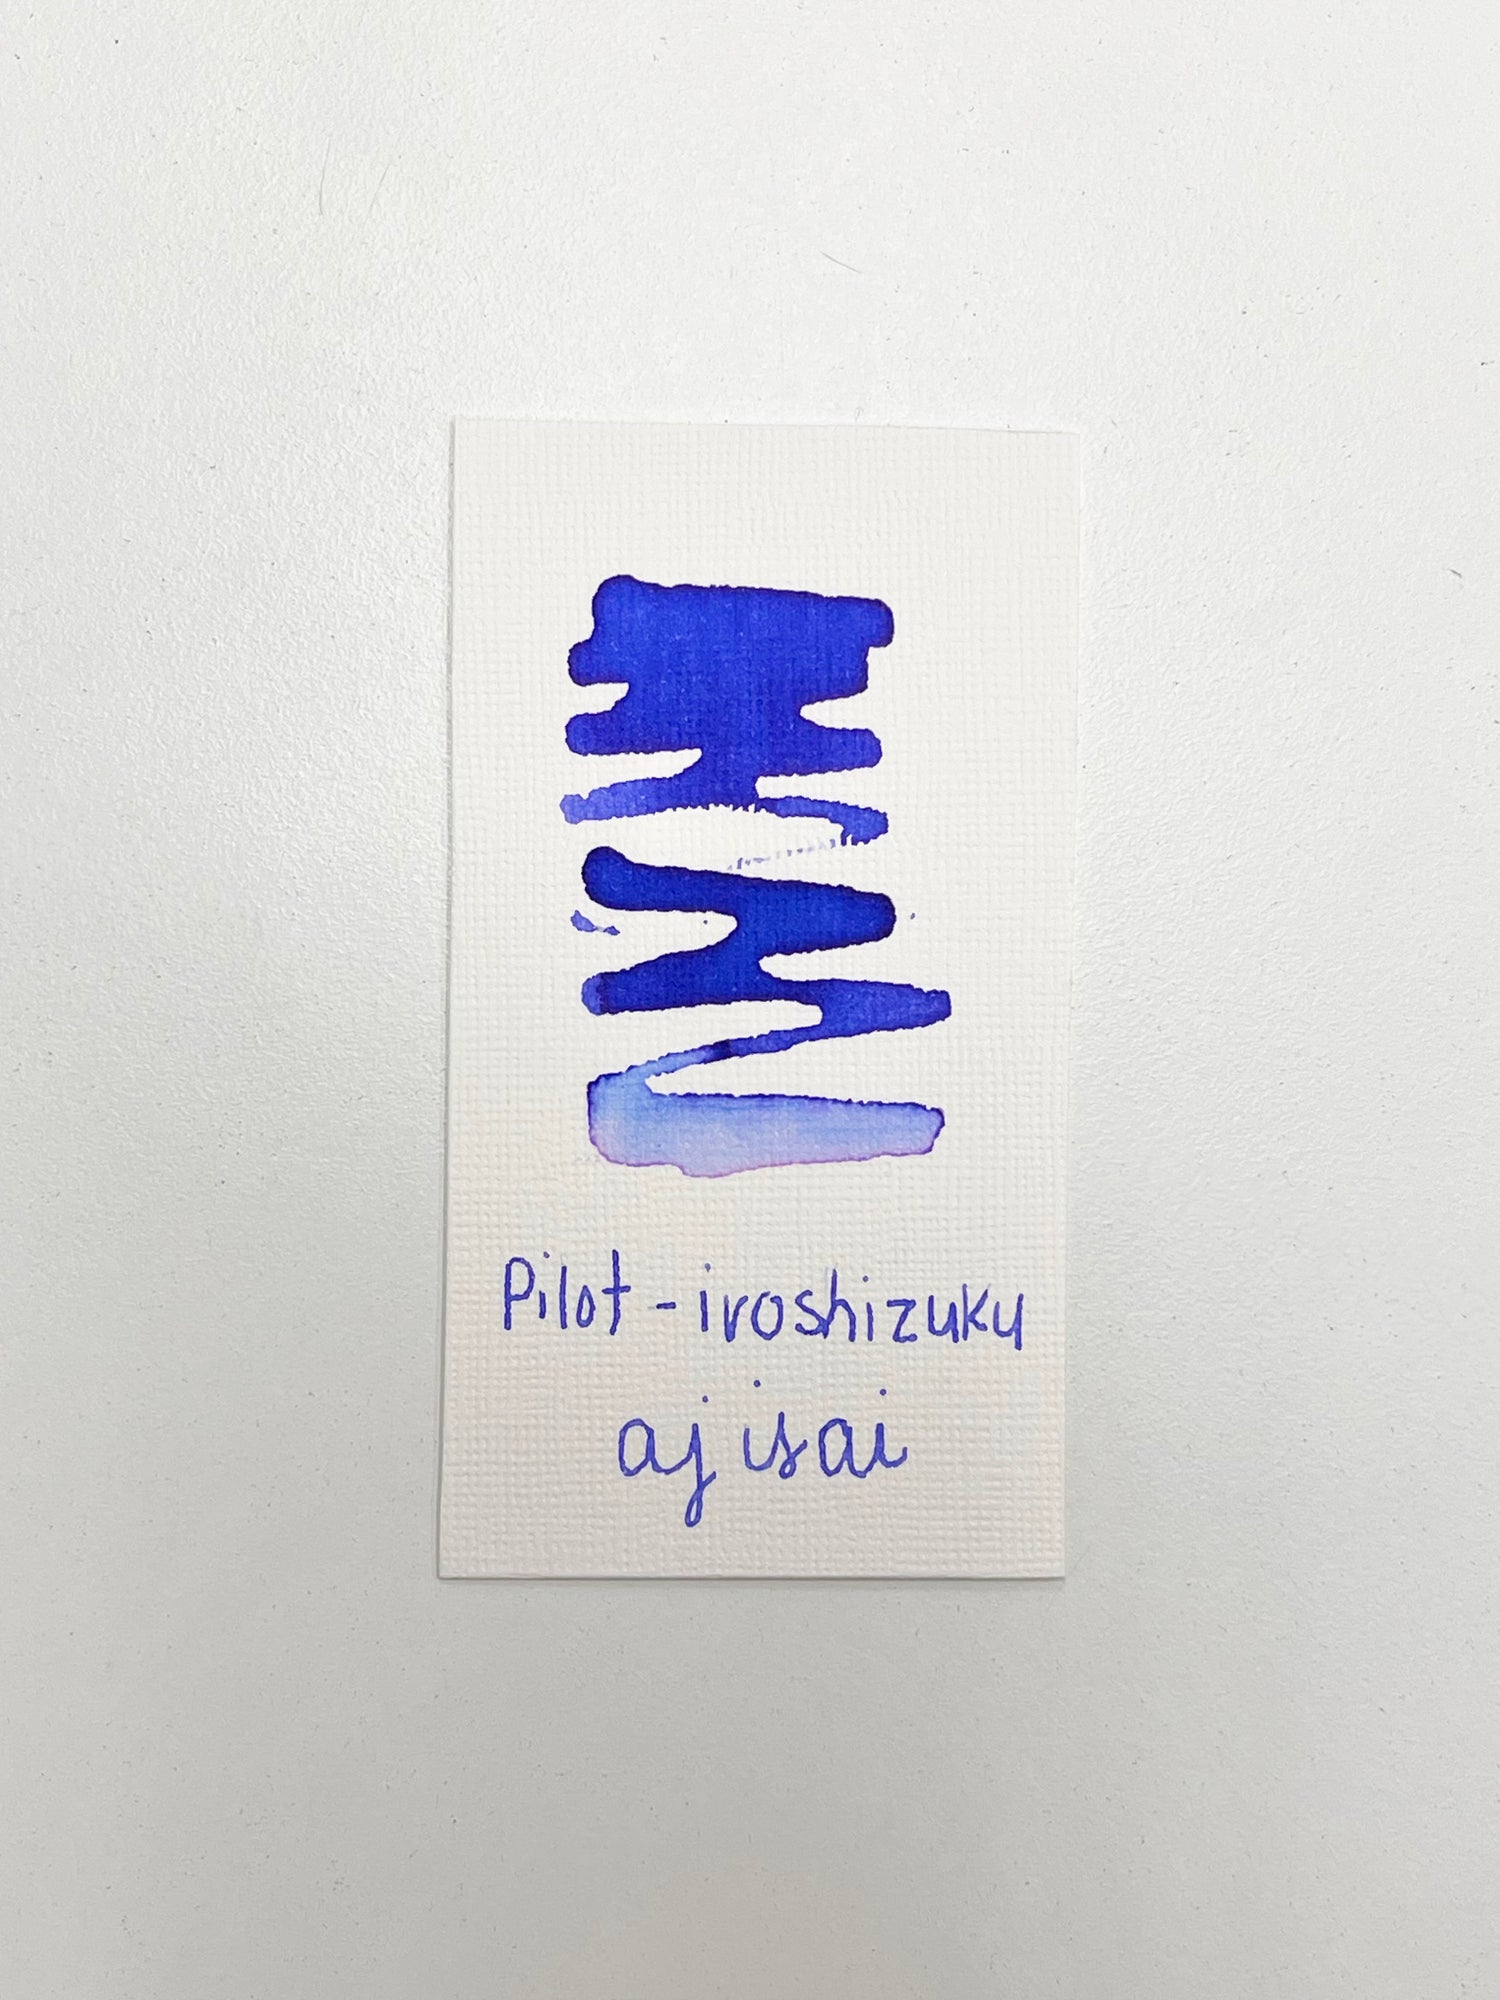 Pilot - iroshizuku
ajisai